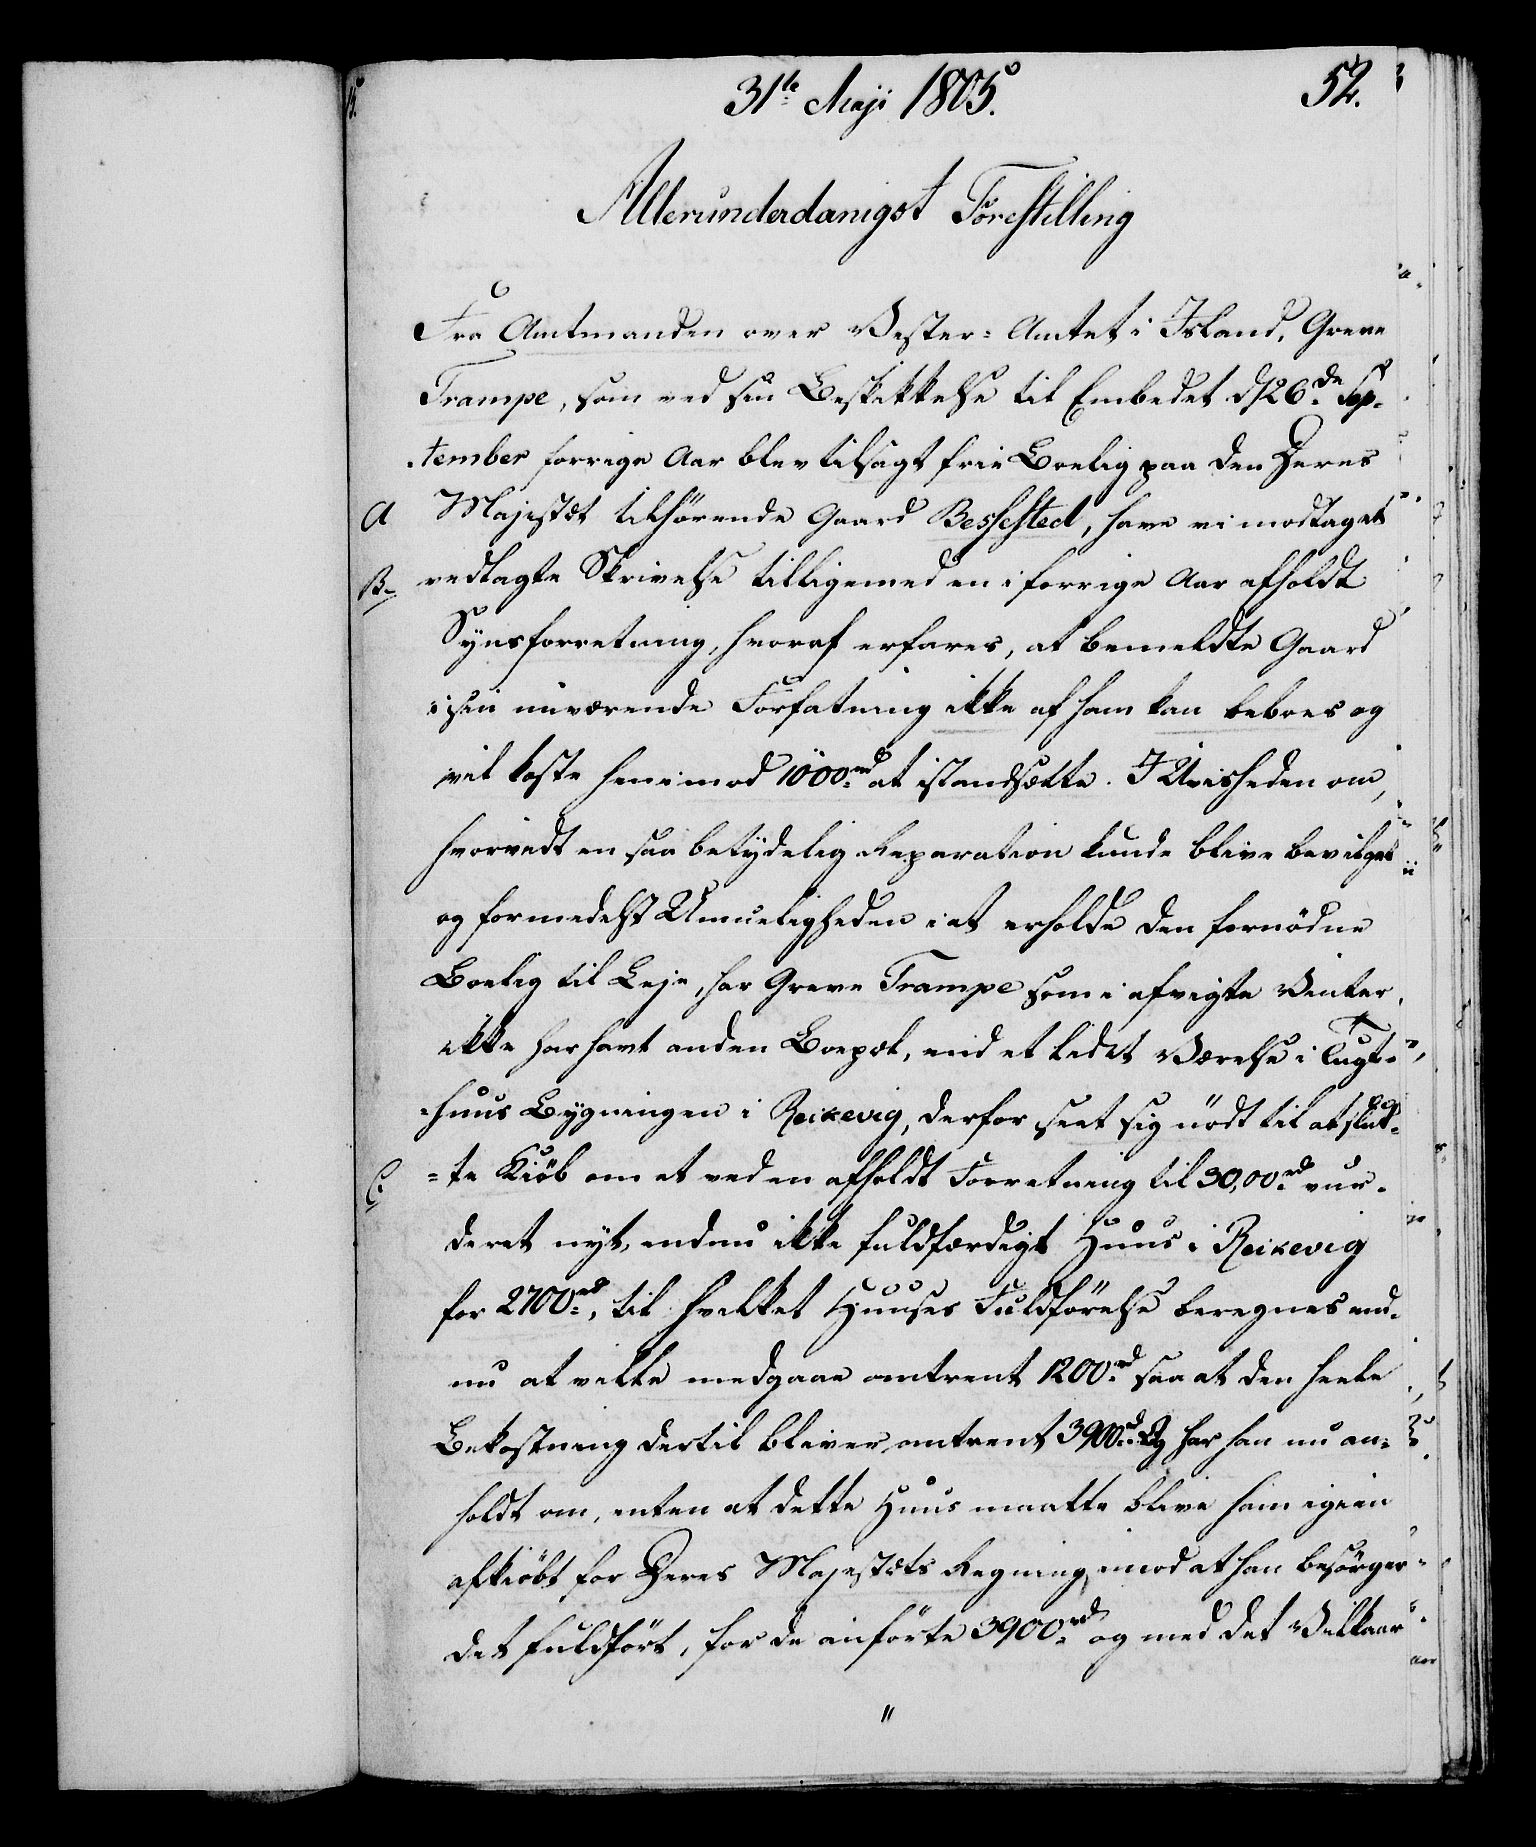 31te Maji 1805.
52.
Allerunderdanigst Forestilling
Fra Amtmanden over Vester-Amtet i Island, Greve
Trampe, som ved sin Beskikkelse til Embedet d/26de Sep-
-tember forrige Aar blev tilsagt frie Boelig paa den Deres
A Majestæt tilhørende Gaard Bessested, have vi modtaget
B. vedlagte Skrivelse tilligemed en i forrige Aar afholdt
Synsforretning, hvoraf erfares, at bemeldte Gaard
i sin nuværende Forfatning ikke af ham kan beboes og
vil koste henimod 1000rd at istandsætte. I Uvisheden om,
hvorvidt en saa betydelig Reparation kunde blive bevilget
og formedelst Umueligheden i at erholde den fornödne
Boelig til Leje, har Greve Trampe som i afvigte Vinter,
ikke har havt anden Boepæl, end et lidet Værelse i Tugt-
-huus Bygningen i Reikevig, derfor seet sig nödt til at slut-
C. -te Kiöb om et ved en afholdt Forretning til 30,00rd vur-
deret nyt, endnu ikke fuldfærdigt Huus i Reikevig
for 2700rd, til hvilket Huuses Fuldförelse beregnes end-
nu at ville medgaae omtrent 1200rd saa at den heele
Bekostning dertil bliver omtrent 3900rd. Og har han nu an-
holdt om, enten at dette Huus maatte blive ham igien
afkiöbt for Deres Majestæts Regning, imod at han besörger
det fuldfört, for de anförte 3900rd og med det Vilkaar
"